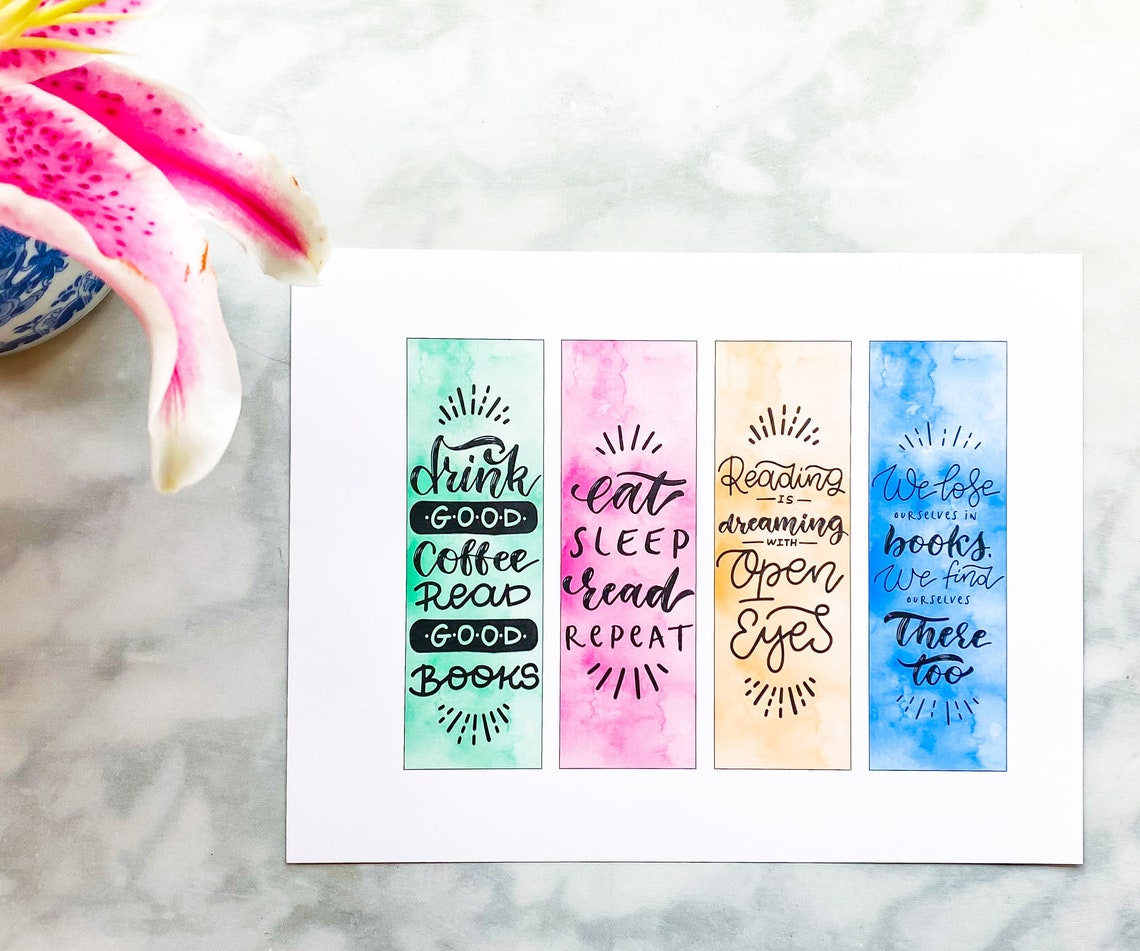 drink
·GOOD·
Coffee
READ
·GOOD·
BOOKS
eat
SLEEP
read
REPEAT
Reading
IS
dreaming
WITH
Open
Eyes
We lose
OURSELVES IN
books.
We find
OURSELVES
There
too